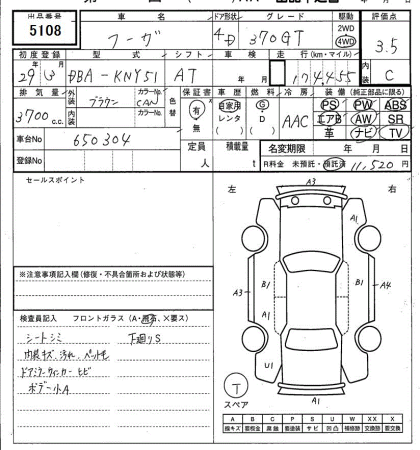 出品番号 車名 ドア形状 グレード 駆動 評価点
5108 フーガ 4D 370GT 2WD 4WD 3.5
初度登録 型式 シフト 車検 走行(km・マイル) 内装
29年3月 DBA-KNY51 AT 年 月 17,455 C
排気量 外装 ブラウン カラーNo. CAN 色替 保証書 車歴 燃料 冷房 装備(純正部品に限る)
3700c.c. 内装 カラーNo. 有 無 自家用 レンタ G D AAC PS PW ABS
エアB AW SR
革 ナビ TV
車台No 650304 定員 人 積載量 t 名変期限 年 月 日
登録No R料金 未預託・預託済 11,520円
セールスポイント
左 右
A3
A1
B1 B1
A3 A1 A4
U1
A1
T
スペア
※注意事項記入欄(修復・不具合箇所および状態等)
検査員記入 フロントガラス(A・飛石、X要ス)
シートシミ 下廻りS
内張キズ、汚れ、ペット毛
ドアミラーウィンカーヒビ
ボデー小A
A B C P S U W X XX
線キズ 要板金 腐蝕 要塗装 サビ 凹凸 補修跡 要交換